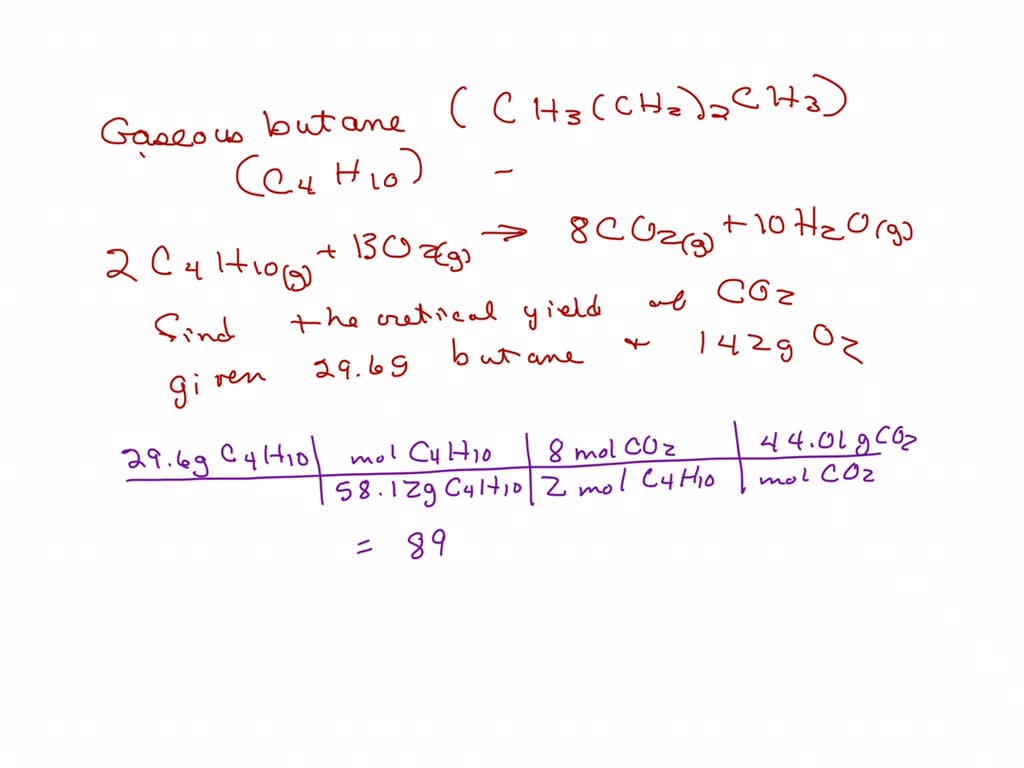 Gaseous butane (CH3(CH2)2CH3)
(C4H10) -
2C4H10(g) + 13O2(g) → 8CO2(g) + 10H2O(g)
find theoretical yield of CO2
given 29.6g butane + 142g O2
29.6g C4H10 | mol C4H10 | 8 mol CO2 | 44.01g CO2
58.12g C4H10 | 2 mol C4H10 | mol CO2
= 89